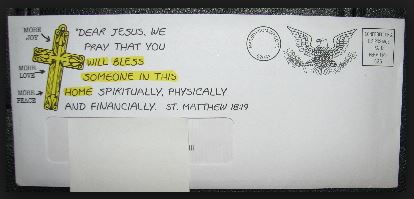 "DEAR JESUS, WE
PRAY THAT YOU
WILL BLESS
SOMEONE IN THIS
HOME SPIRITUALLY, PHYSICALLY
AND FINANCIALLY. ST. MATTHEW 18:19
MORE
JOY
MORE
LOVE
MORE
PEACE